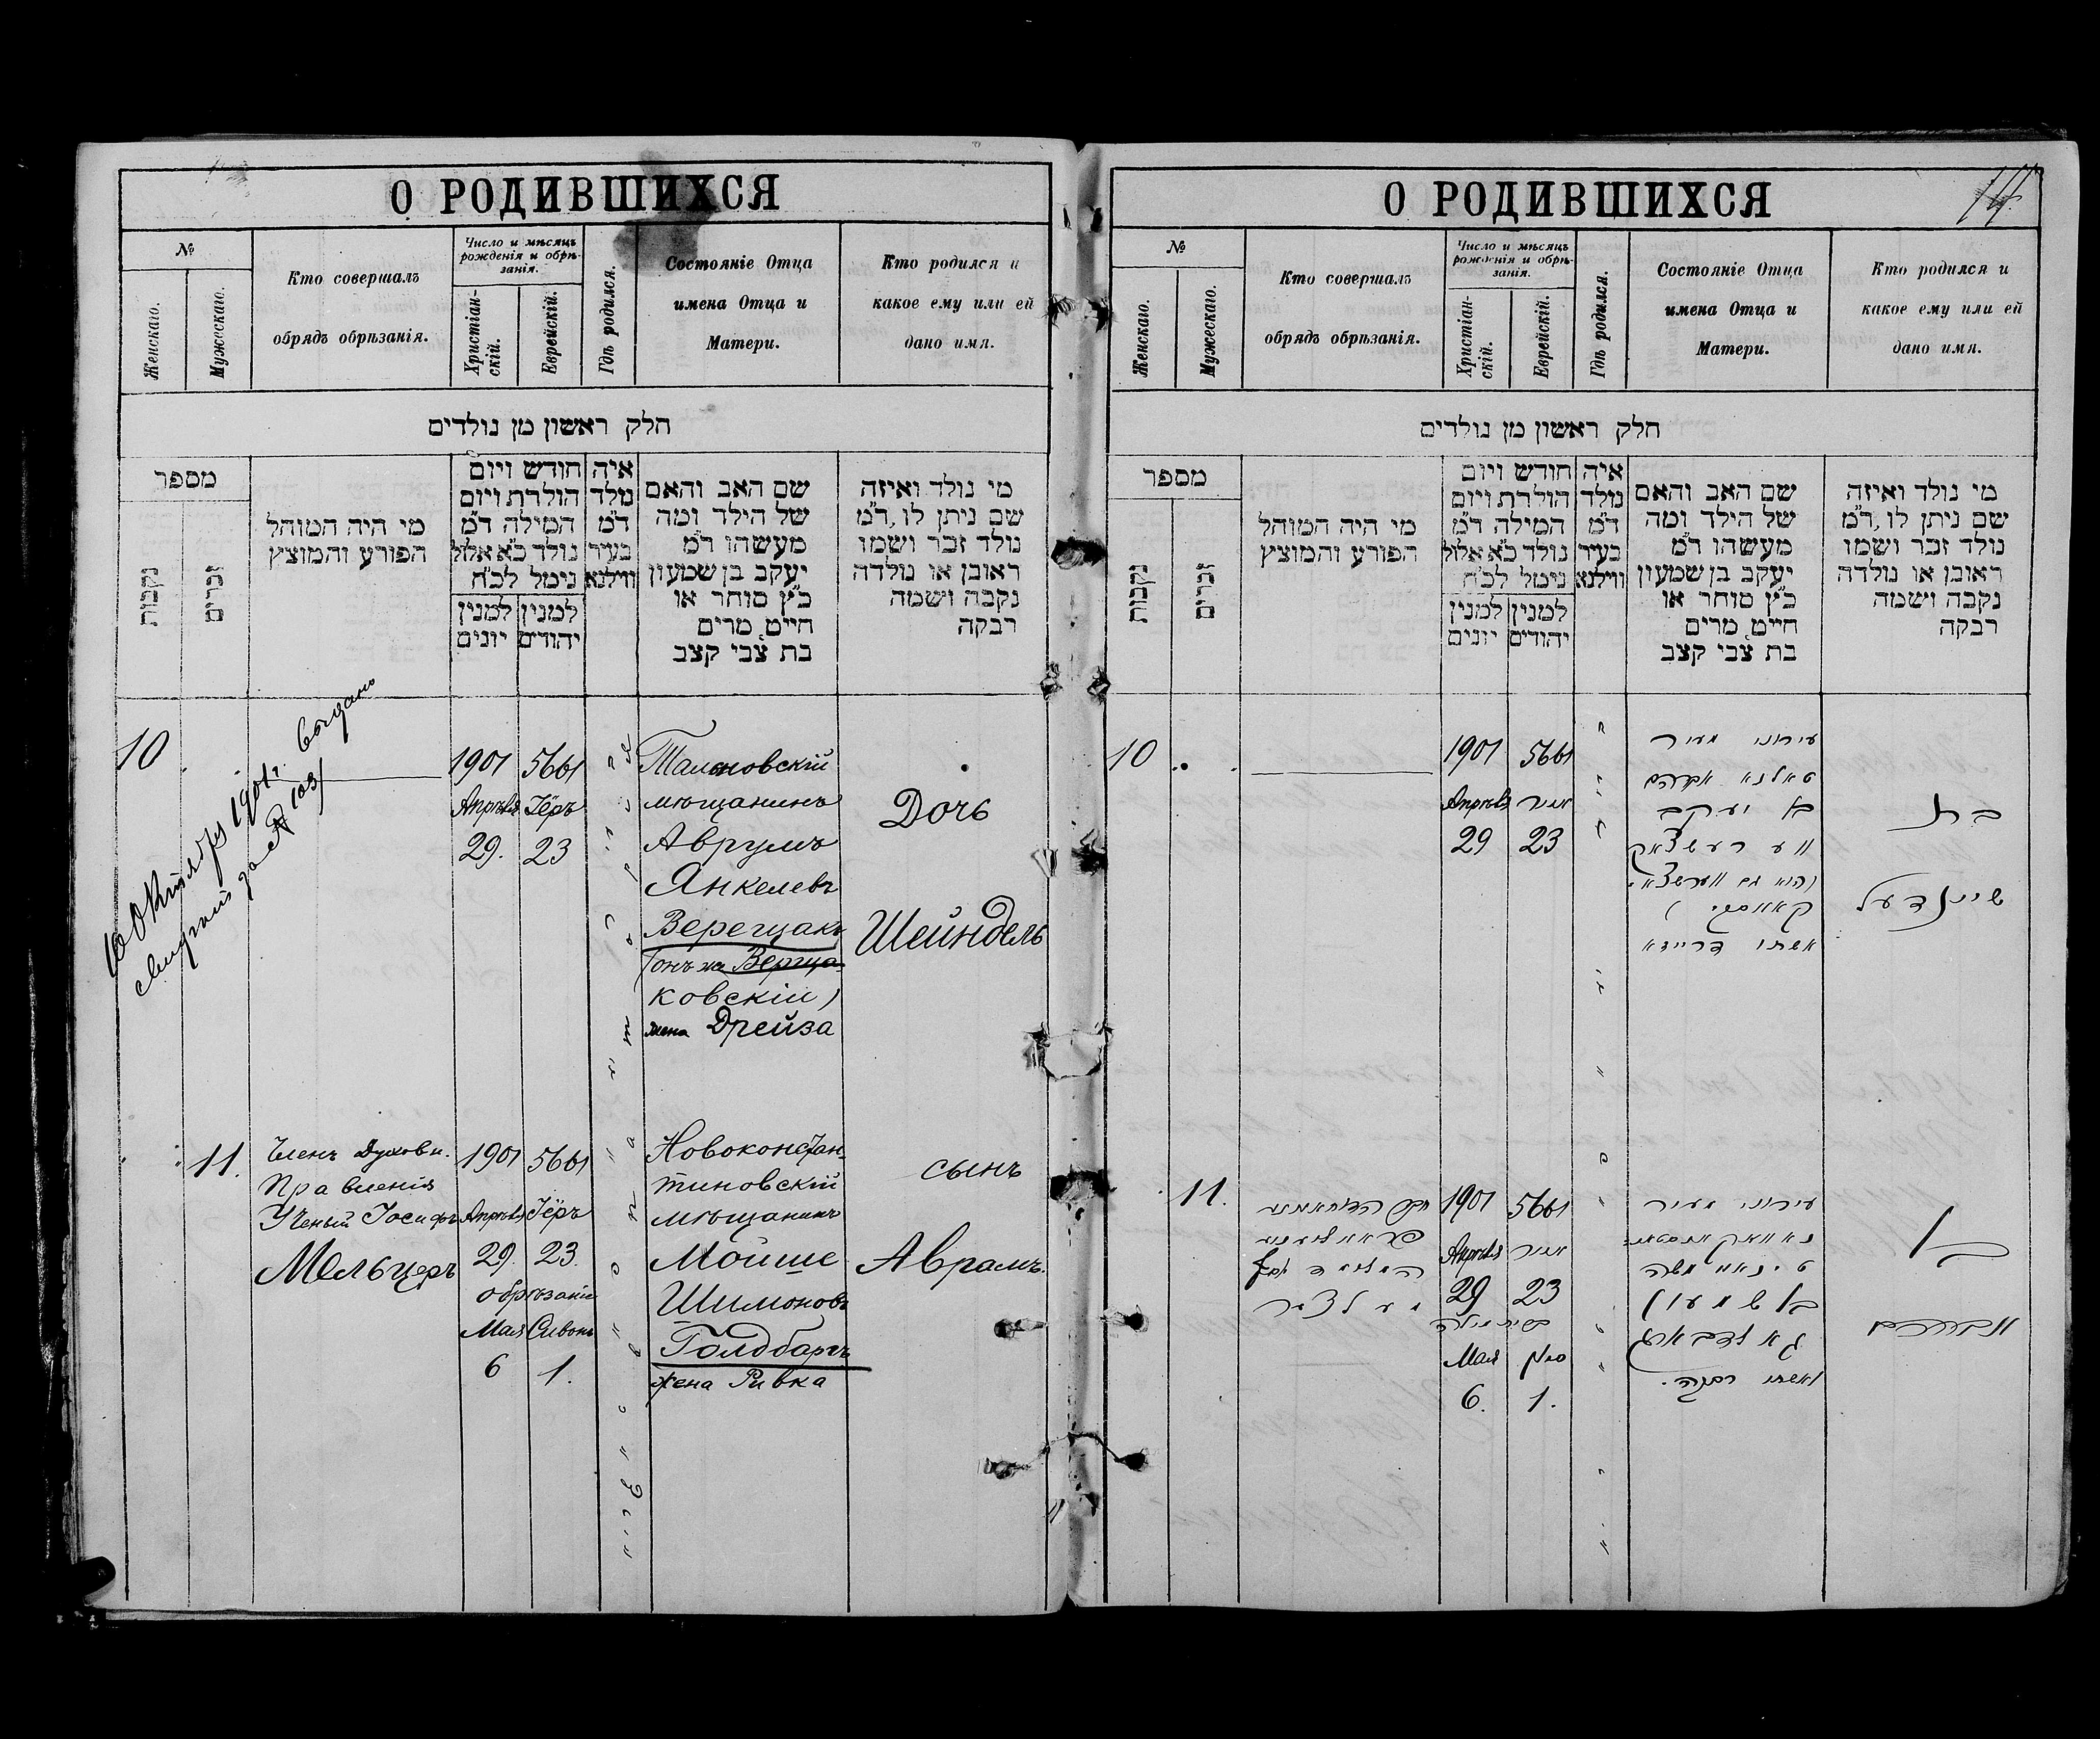 О РОДИВШИХСЯ
№
Женскаго.
Мужескаго.
Кто совершалъ
обрядъ обрѣзанія.
Число и мѣсяцъ
рожденія и обрѣ-
занія.
Христіан-
скій.
Еврейскій.
Гдѣ родился.
Состояніе Отца
имена Отца и
Матери.
Кто родился и
какое ему или ей
дано имя.
חלק ראשון מן נולדים
מספר
נקבות
זכרים
מי היה המוהל
הפורע והמוצץ
חודש ויום
הולדת ויום
המילה ד"מ
נולד כ"א אלול
נימל לכ"ח
למנין
יהודים
למנין
יונים
איה
נולד
ד"מ
בעיר
ווילנא
שם האב והאם
של הילד ומה
מעשהו ד"מ
יעקב בן שמעון
כ"ץ סוחר או
חייט, מרים
בת צבי קצב
מי נולד ואיזה
שם ניתן לו, ד"מ
נולד זכר ושמו
ראובן או נולדה
נקבה ושמה
רבקה
10
10 Октября 1901 г. выдано
за № 103
1901
Апрѣля
29.
5661
Іёръ
23
мѣщанинъ
Аврумъ
Янкелевъ
Верещакъ
(онъ же Верща-
ковскій)
жена Дрейза
Дочь
Шейндель
11.
Членъ Духовн.
Правленія
Ученый Іосифъ
Мельцеръ
1901
Апрѣля
29.
5661
Іёръ
23.
обрѣзаніе
Мая
6
Сивонъ
1.
Новоконстан-
тиновскій
мѣщанинъ
Мойше
Шимоновъ
Голдбаргъ
жена Ривка
сынъ
Аврамъ.
О РОДИВШИХСЯ
14.
№
Женскаго.
Мужескаго.
Кто совершалъ
обрядъ обрѣзанія.
Число и мѣсяцъ
рожденія и обрѣ-
занія.
Христіан-
скій.
Еврейскій.
Гдѣ родился.
Состояніе Отца
имена Отца и
Матери.
Кто родился и
какое ему или ей
дано имя.
חלק ראשון מן נולדים
מספר
נקבות
זכרים
מי היה המוהל
הפורע והמוצץ
חודש ויום
הולדת ויום
המילה ד"מ
נולד כ"א אלול
נימל לכ"ח
למנין
יהודים
למנין
יונים
איה
נולד
ד"מ
בעיר
ווילנא
שם האב והאם
של הילד ומה
מעשהו ד"מ
יעקב בן שמעון
כ"ץ סוחר או
חייט, מרים
בת צבי קצב
מי נולד ואיזה
שם ניתן לו, ד"מ
נולד זכר ושמו
ראובן או נולדה
נקבה ושמה
רבקה
10
1901
Апрѣля
29
5661
אייר
23
עירוני מעיר
טאלנא אברהם
בן יעקב
ווערעשצאק
אשתו דרייזא
בת
שיינדעל
11.
מעלצער
1901
Апрѣля
29
5661
אייר
23
Мая
6.
סיון
1.
עירוני מעיר
משה
בן שמעון
גאלדבארג
ואשתו רבקה.
בן
אברהם